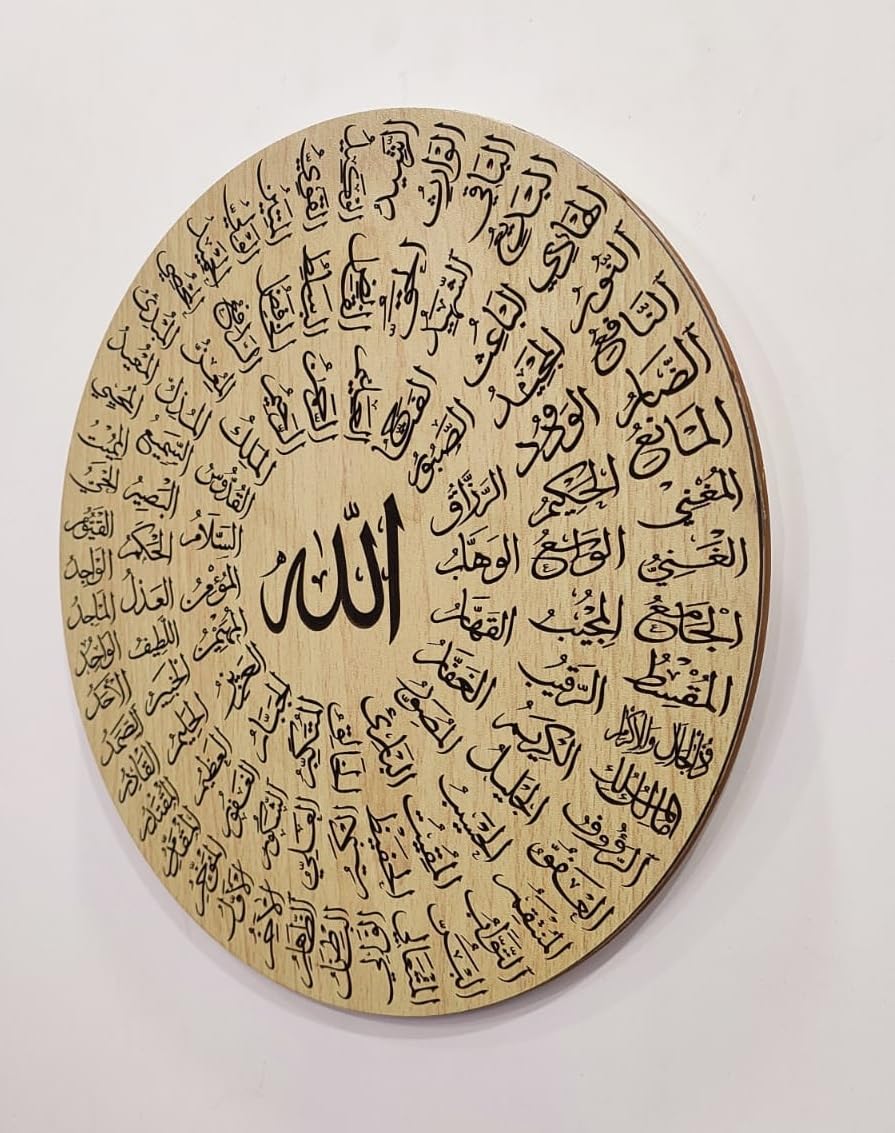 الله
الملك
القدوس
السلام
المؤمن
المهيمن
العزيز
الجبار
المتكبر
الخالق
البارئ
المصور
الغفار
القهار
الوهاب
الرزاق
الفتاح
المذل
السميع
البصير
الحكم
العدل
اللطيف
الخبير
الحليم
العظيم
الغفور
الشكور
العلي
الكبير
الحفيظ
المقيت
الحسيب
الجليل
الكريم
الرقيب
المجيب
الواسع
الحكيم
الودود
المجيد
الباعث
الشهيد
الحق
المميت
الحي
القيوم
الواجد
الماجد
الواحد
الأحد
الصمد
القادر
المقتدر
المقدم
المؤخر
الأول
الآخر
الظاهر
الباطن
الوالي
المتعالي
البر
التواب
المنتقم
العفو
الرؤوف
مالك الملك
ذو الجلال والإكرام
المقسط
الجامع
الغني
المغني
المانع
الضار
النافع
النور
الهادي
البديع
الباقي
الوارث
الرشيد
الصبور